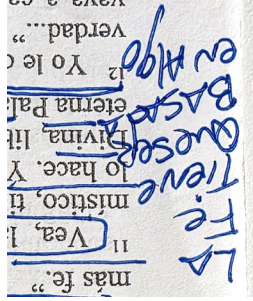 más fe.”
11 Vea, l
místico, ti
lo hace. Y
Divina, lit
eterna Pala
12 Yo le o
verdad...”
vaya a ca
LA
FE
TIENE
QUE SER
BASADA
EN Algo